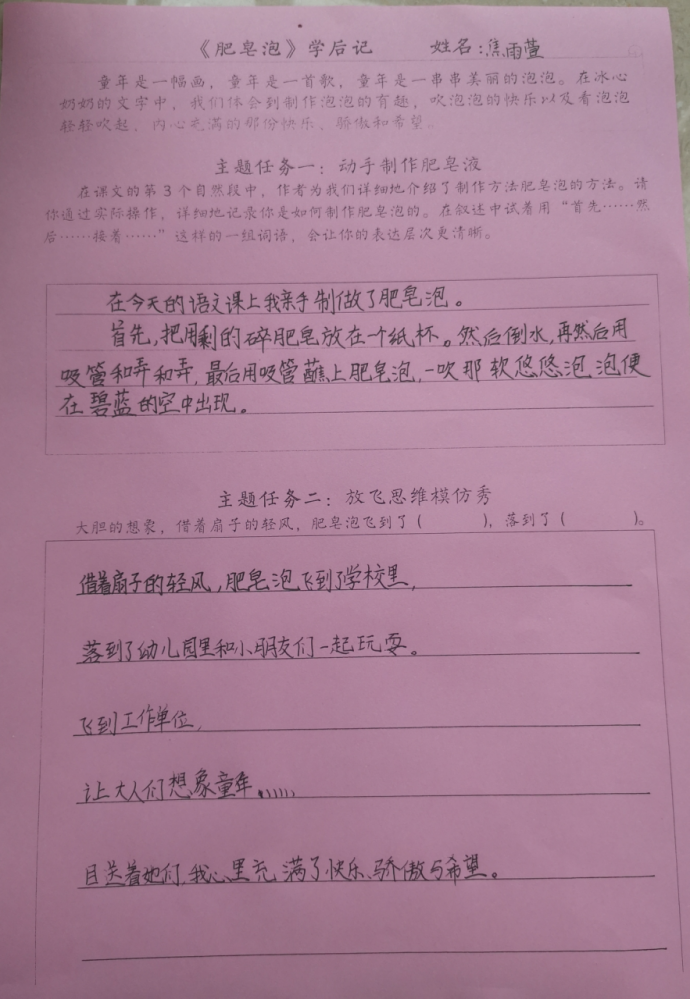 《肥皂泡》学后记 姓名:焦雨萱
童年是一幅画，童年是一首歌，童年是一串串美丽的泡泡。在冰心
奶奶的文字中，我们体会到制作泡泡的有趣，吹泡泡的快乐以及看泡泡
轻轻吹起，内心充满的那份快乐、骄傲和希望。
主题任务一：动手制作肥皂液
在课文的第3个自然段中，作者为我们详细地介绍了制作方法肥皂泡的方法。请
你通过实际操作，详细地记录你是如何制作肥皂泡的。在叙述中试着用“首先……然
后……接着……”这样的一组词语，会让你的表达层次更清晰。
在今天的语文课上我亲手制做了肥皂泡。
首先，把用剩的碎肥皂放在一个纸杯。然后倒水，再然后用
吸管和弄和弄，最后用吸管蘸上肥皂泡，一吹那软悠悠泡泡便
在碧蓝的空中出现。
主题任务二：放飞思维模仿秀
大胆的想象，借着扇子的轻风，肥皂泡飞到了（ ），落到了（ ）。
借着扇子的轻风，肥皂泡飞到了学校里，
落到了幼儿园里和小朋友们一起玩耍。
飞到工作单位，
让大人们想象童年......
目送着她们，我心里充满了快乐、骄傲与希望。